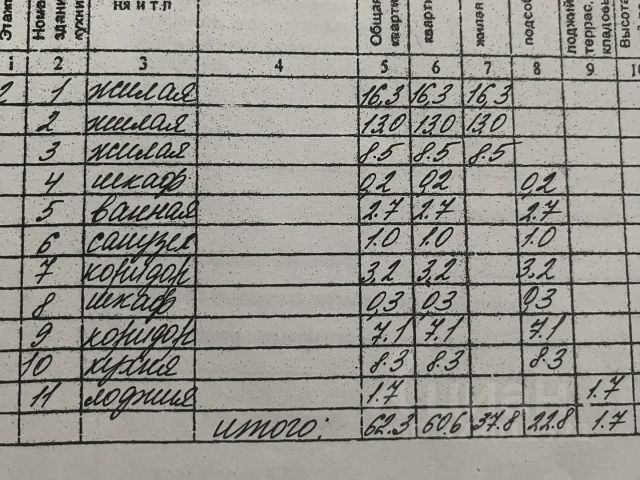 Этажн
Номе
здани
кухни
ня и т.п
Общая
кварти
кварти
жилая
подсоб
лоджий
террас,
кладовы
Высота
1 2 3 4 5 6 7 8 9 10
2 1 жилая 16,3 16,3 16,3
2 жилая 13,0 13,0 13,0
3 жилая 8.5 8.5 8.5
4 шкаф 0,2 0,2 0,2
5 ванная 2.7 2.7 2.7
6 санузел 1.0 1.0 1.0
7 коридор 3,2 3,2 3.2
8 шкаф 0,3 0,3 0,3
9 коридор 7.1 7.1 7.1
10 кухня 8.3 8.3 8.3
11 лоджия 1.7 1.7
итого: 62.3 60.6 37.8 22.8 1.7